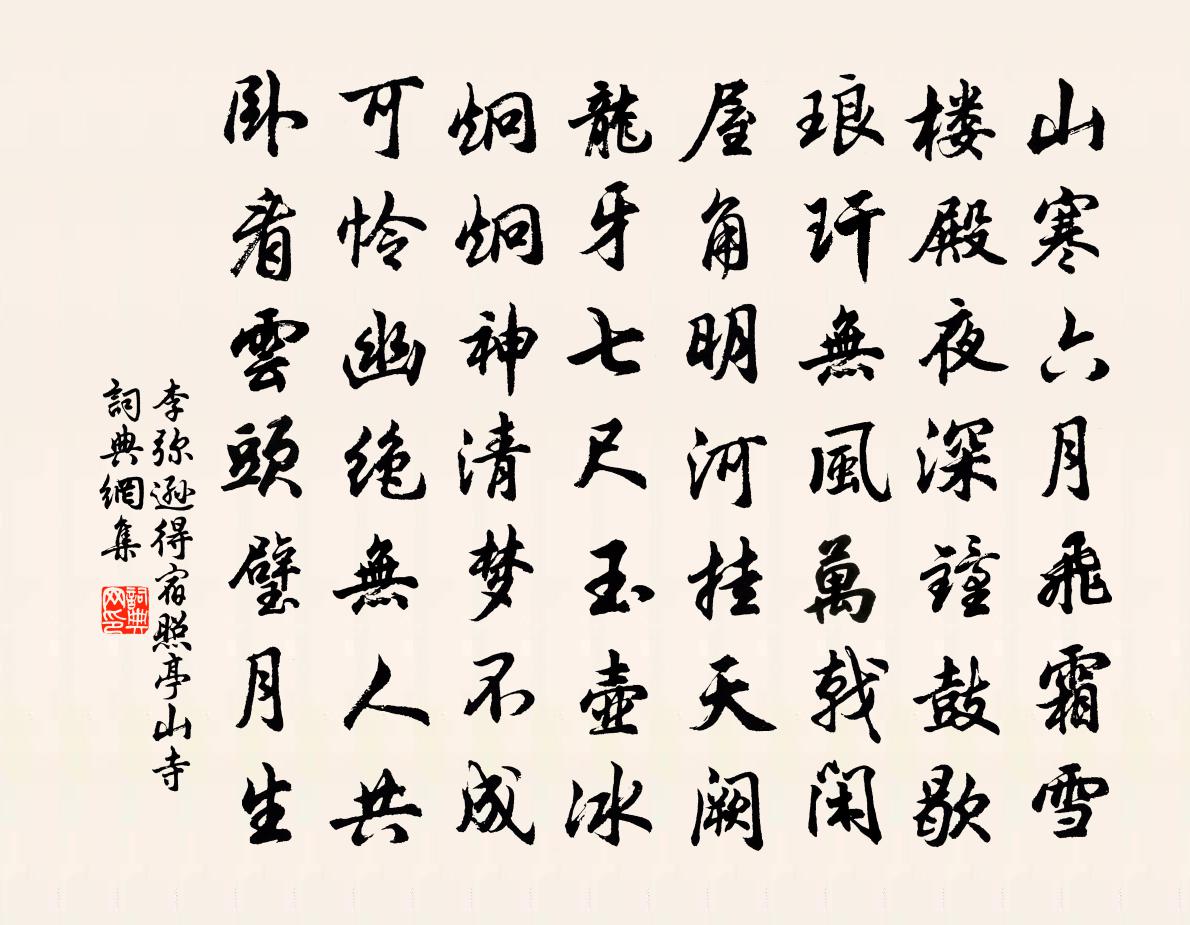 山寒六月飛霜雪
楼殿夜深鐘鼓歇
琅玕無風萬戟閑
屋角明河挂天阙
龍牙七尺玉壺冰
炯炯神清梦不成
可怜幽绝無人共
卧看雲頭璧月生
李弥遜得宿照亭山寺
詞典網集
詞典网印